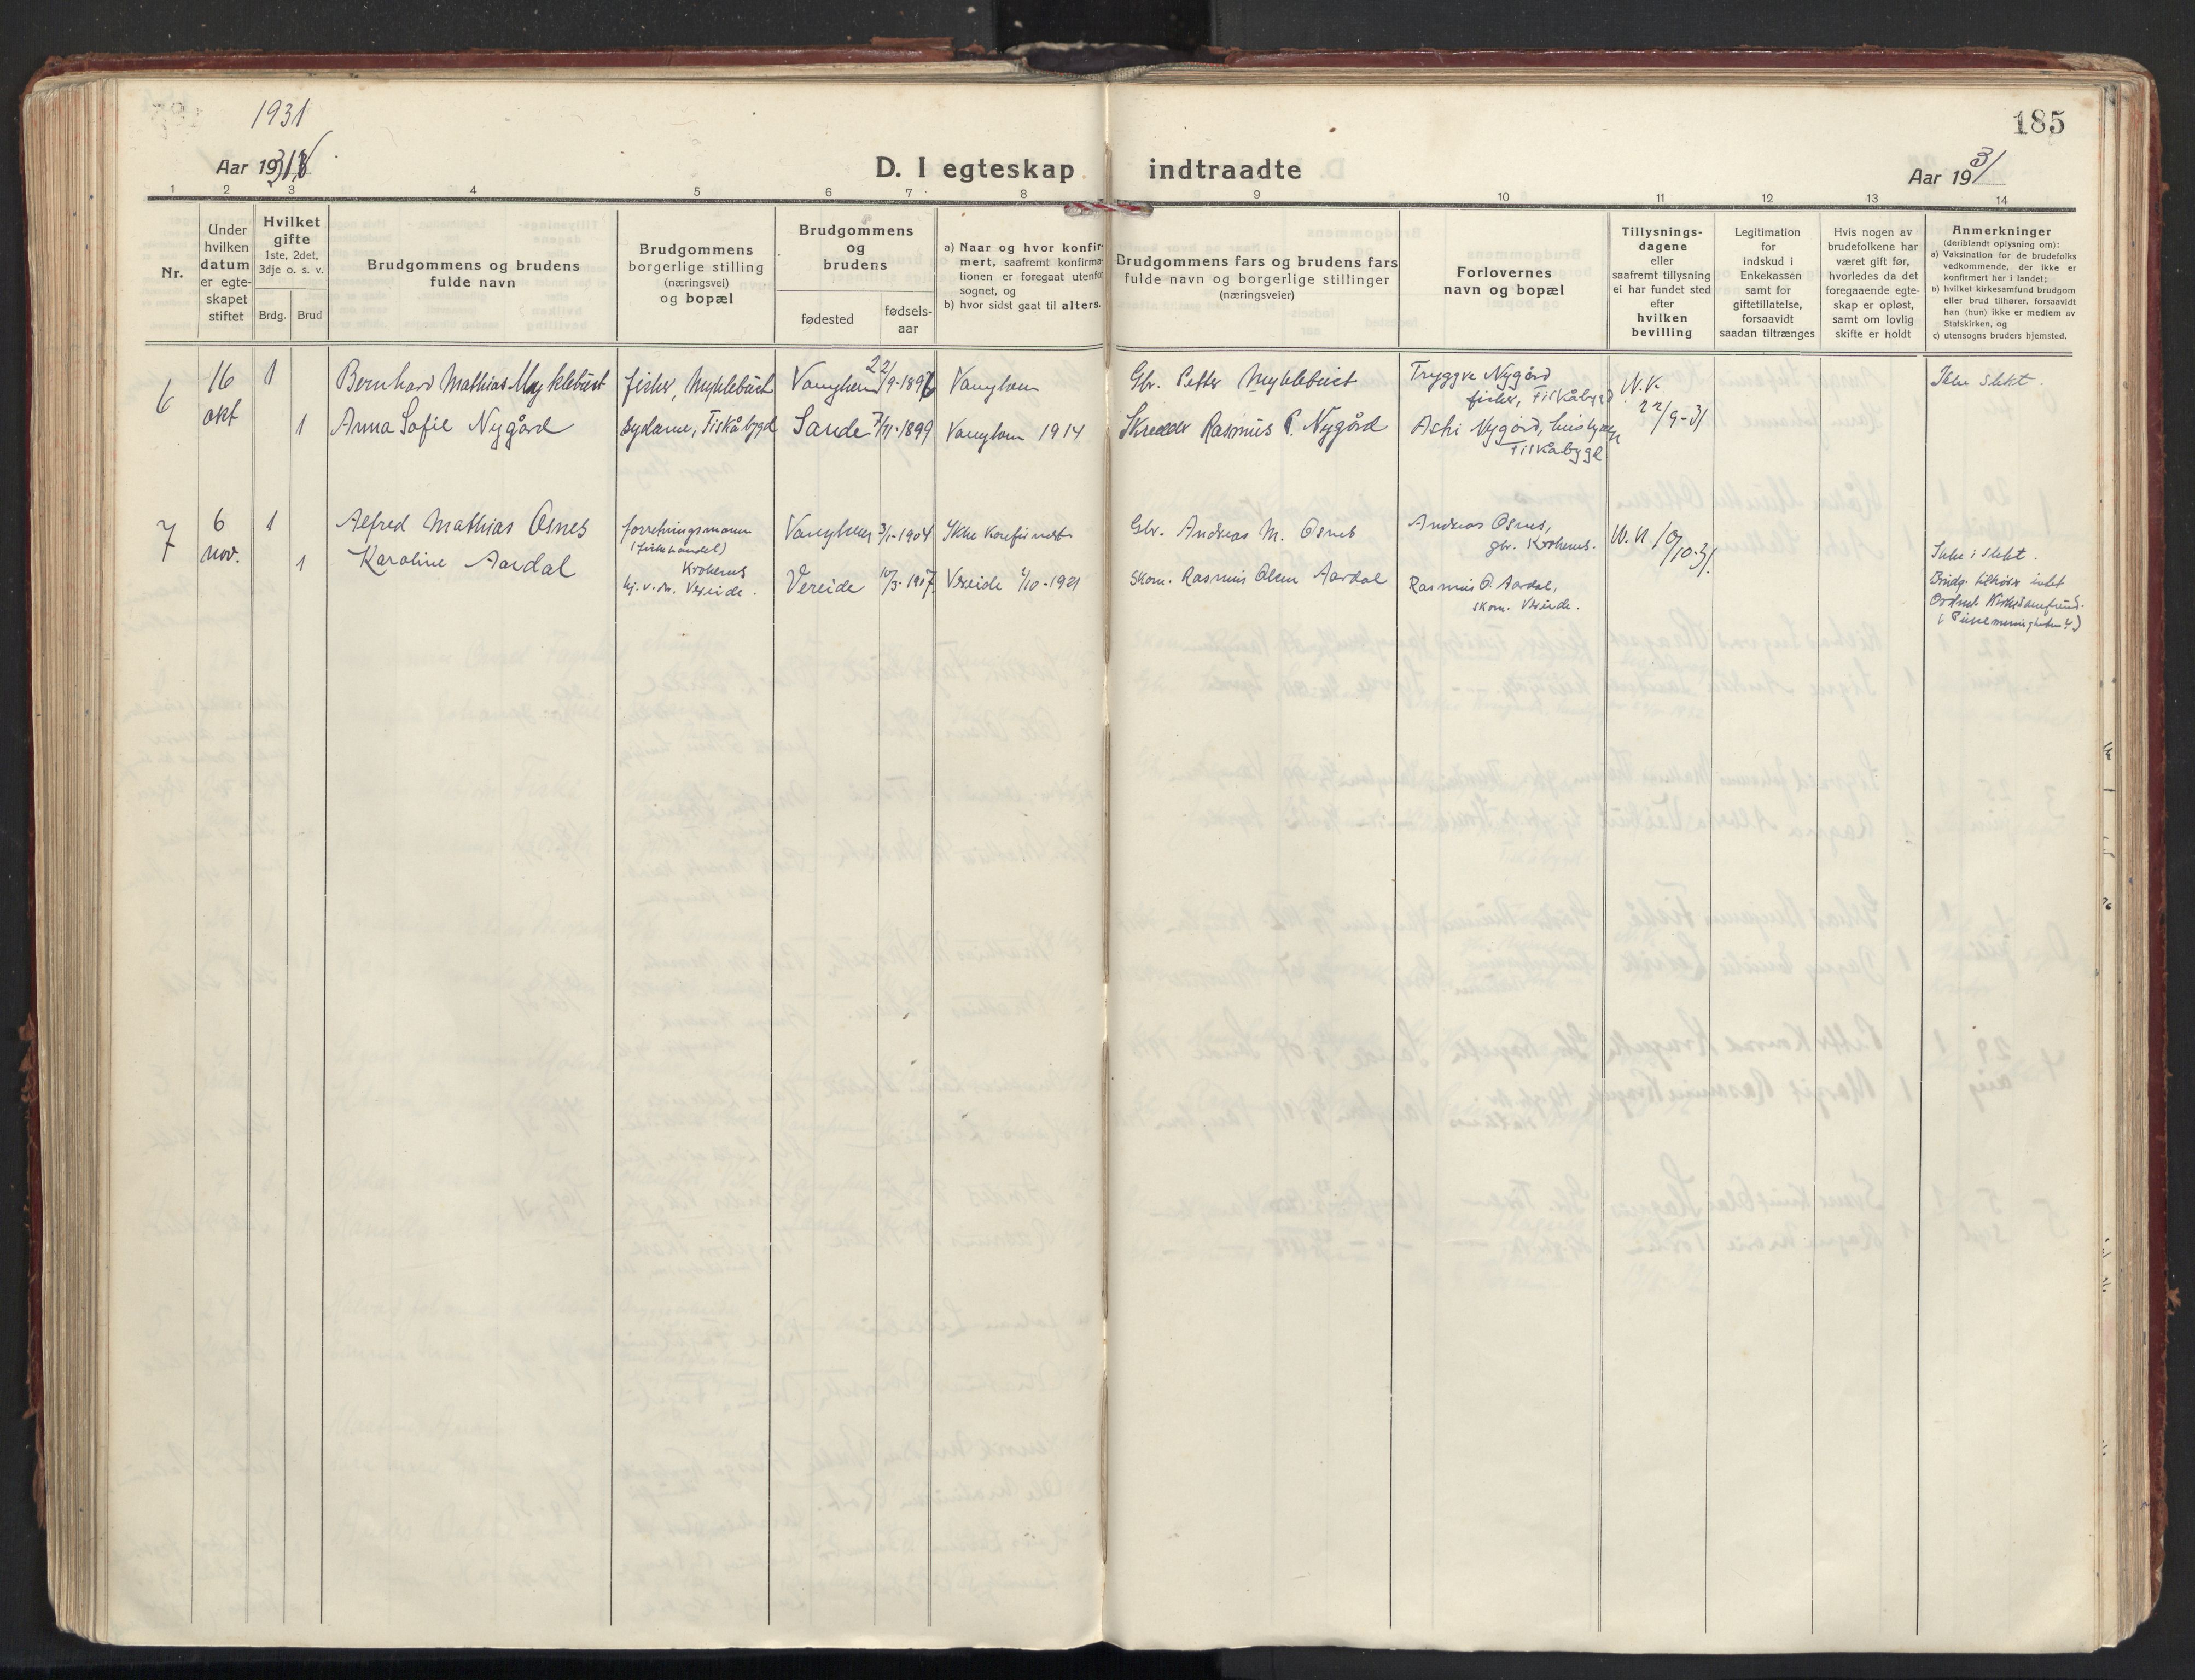 1931
185
Aar 1931
D. I egteskap indtraadte
Aar 1931
1 2 3 4 5 6 7 8 9 10 11 12 13 14
Nr.
Under
hvilken
datum
er egte-
skapet
stiftet
Hvilket
gifte
1ste, 2det,
3dje o. s. v.
Brdg. Brud
Brudgommens og brudens
fulde navn
Brudgommens
borgerlige stilling
(næringsvei)
og bopæl
Brudgommens
og
brudens
fødested
fødsels-
aar
a) Naar og hvor konfir-
mert, saafremt konfirma-
tionen er foregaat utenfor
sognet, og
b) hvor sidst gaat til alters.
Brudgommens fars og brudens fars
fulde navn og borgerlige stillinger
(næringsveier)
Forlovernes
navn og bopæl
Tillysnings-
dagene
eller
saafremt tillysning
ei har fundet sted
efter
hvilken
bevilling
Legitimation
for
indskud i
Enkekassen
samt for
giftetillatelse,
forsaavidt
saadan tiltrænges
Hvis nogen av
brudefolkene har
været gift før,
hvorledes da det
foregaaende egte-
skap er opløst,
samt om lovlig
skifte er holdt
Anmerkninger
(deriblandt oplysning om):
a) Vaksination for de brudefolks
vedkommende, der ikke er
konfirmert her i landet;
b) hvilket kirkesamfund brudgom
eller brud tilhører, forsaavidt
han (hun) ikke er medlem av
Statskirken, og
c) utensogns bruders hjemsted.
6
16
okt
1
Bernhard Mathias Myklebust
fisker, Myklebust
Vanylven
22/9-1897
Vanylven
Gbr. Petter Myklebust
Tryggve Nygård
fisker, Fiskåbygd
V.K.
22/9-31
Ikke slekt.
1
Anna Sofie Nygård
syderne, Fiskåbygd
Sande
7/11-1899
Vanylven 1914
Skredder Rasmus P. Nygård
Astri Nygård,
Fiskåbygd.
7
6
nov.
1
Alfred Mathias Osnes
forretningsmann
(fiskehandel)
Krokenes
Vanylven
3/1-1904
Ikke konfirmert
Gbr. Andreas M. Osnes
Andreas Osnes,
gbr. Krokenes.
V.K 10/10-31.
1
Karoline Aardal
Vereide.
Vereide
10/3-1907.
Vereide 2/10-1921
Skom. Rasmus Olsen Aardal
Rasmus O. Aardal,
skom. Vereide.
Ikke i slekt.
Brudg. tilhører intet
Ordnet Kirkesamfund.
(Pinsemenigheten?)